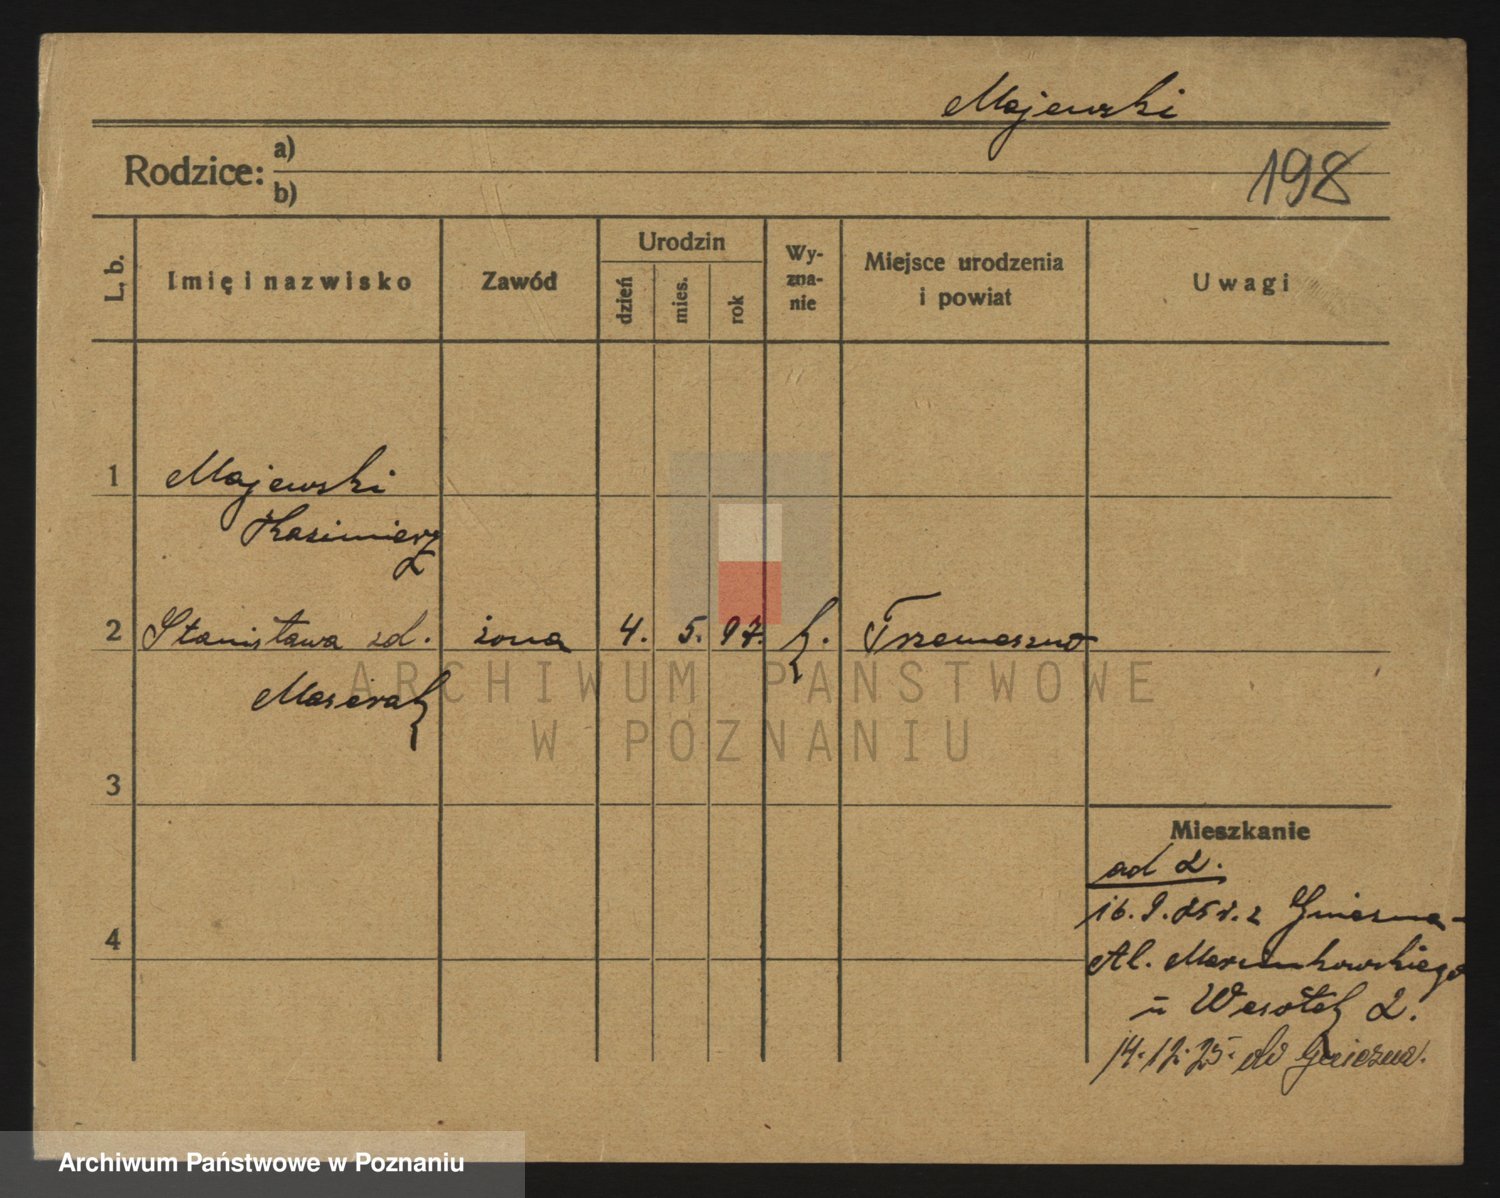 Majewski
Rodzice: a)
b)
198
L. b.
Imię i nazwisko
Zawód
Urodzin
dzień
mies.
rok
Wy-
zna-
nie
Miejsce urodzenia
i powiat
Uwagi
1 Majewski
Kazimierz
2 Stanisława zd. żona 4. 5. 97. k. Trzemeszno
ARCHIWUM PAŃSTWOWE
W POZNANIU
3
Mieszkanie
ad 2.
16. 9. 25 r. z Gniezna-
4
Al. Marcinkowskiego
u Wesołek 2.
14. 12. 25. do Gniezna.
Archiwum Państwowe w Poznaniu